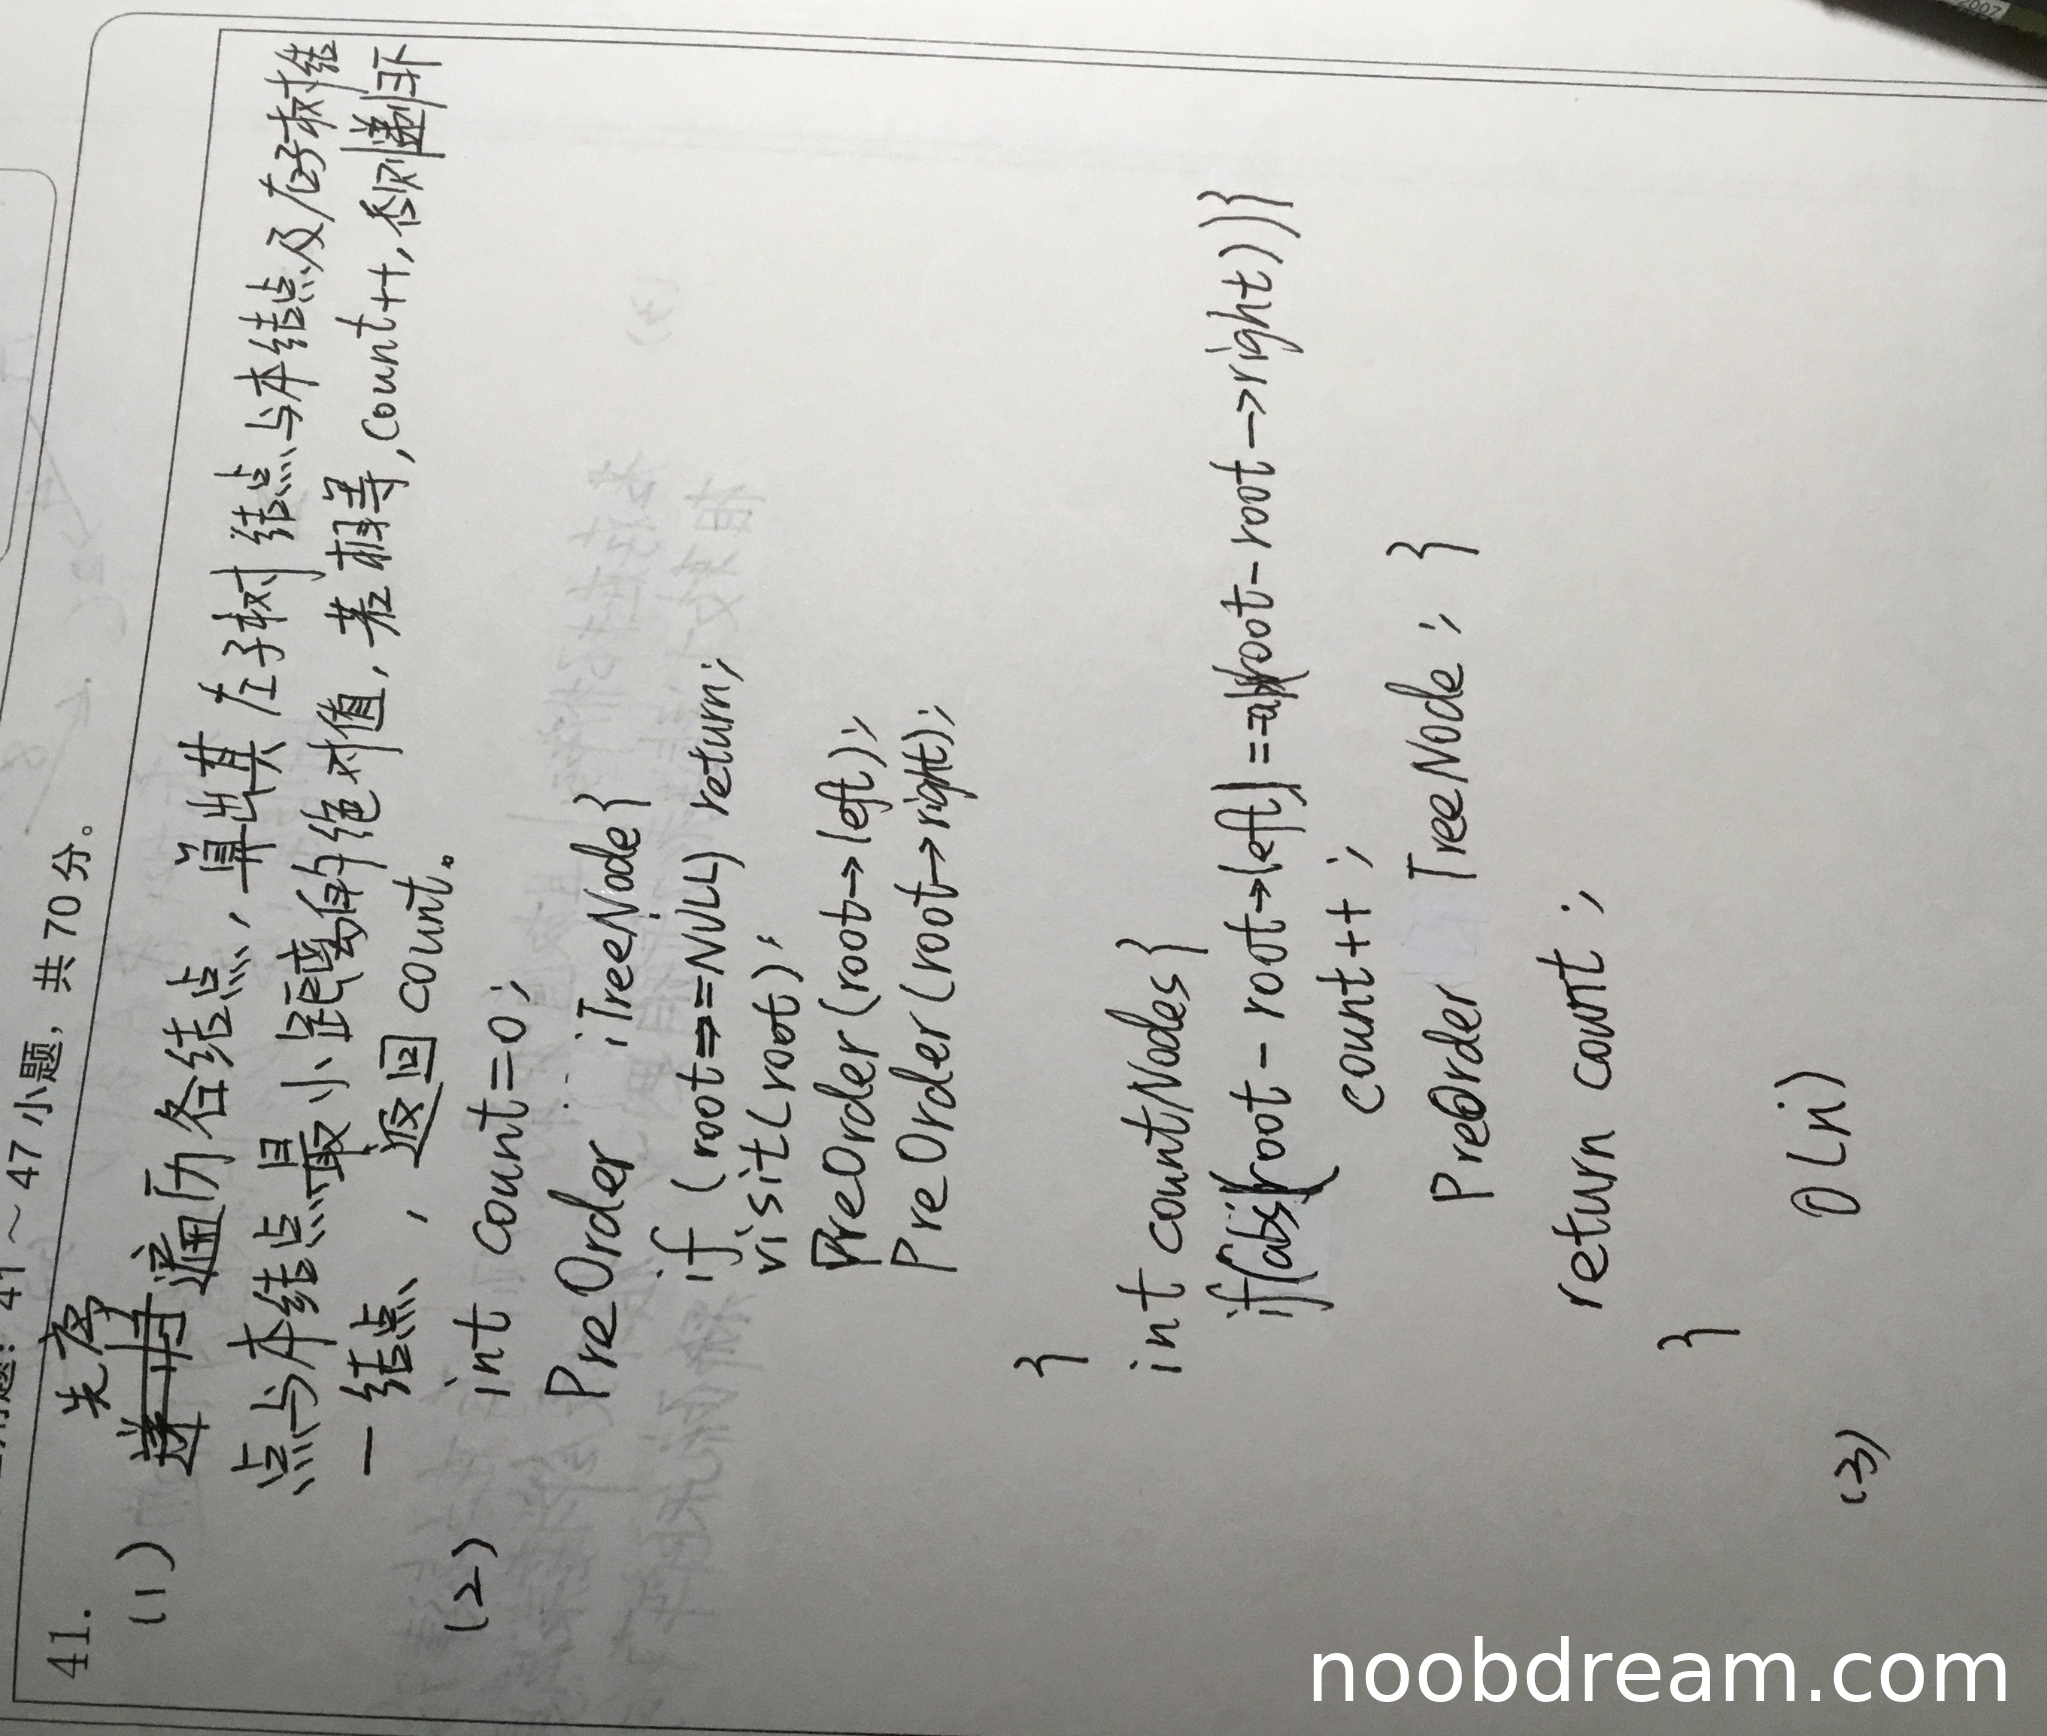 41～47小题，共70分。
41.
先序
(1) 遍历各结点，算出其左子树结点与本结点及右子树结
点与本结点最小距离的绝对值，若相等，count++，否则 下
一结点，返回count。
(2) int count=0;
PreOrder iTreeNode{
if (root==NULL) return;
visit(root);
PreOrder(root->left);
PreOrder(root->right);
}
int countNodes{
if(abs(root-root->left)==abs(root-root->right)){
count++;
PreOrder TreeNode; }
return count;
}
(3) O(n)
2007
noobdream.com